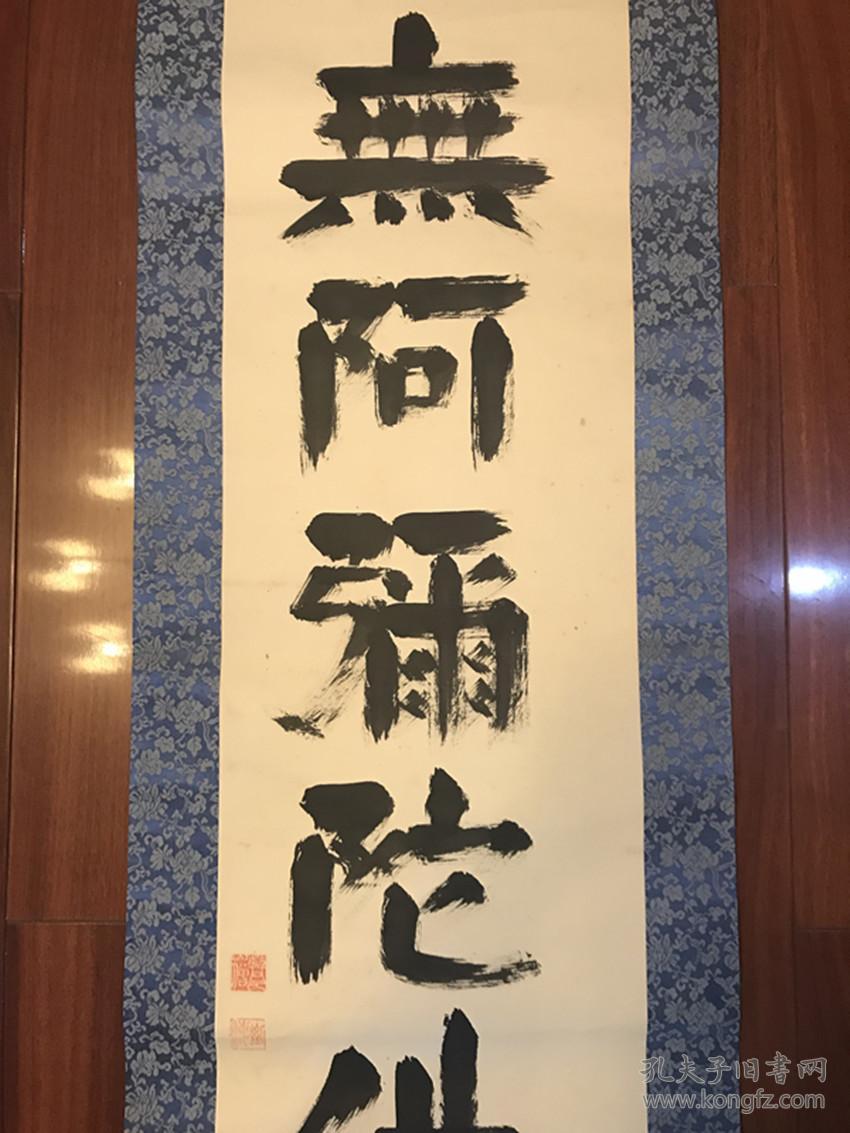 無阿彌陀佛
孔夫子旧书网
www.kongfz.com